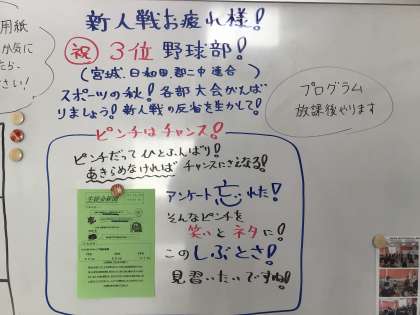 用紙
か気に
たら、
さい!
新人戦お疲れ様!
祝 3位 野球部!
(宮城、日和田、郡二中 連合)
スポーツの秋!各部大会がんば
りましょう!新人戦の反省を生かして!
プログラム
放課後やります
ピンチはチャンス!
ピンチだってひとふんばり!
あきらめなければ チャンスにさえなる!
生徒会新聞
アンケート忘れた!
そんなピンチを
笑いとネタに!
このしぶとさ!
見習いたいですね!